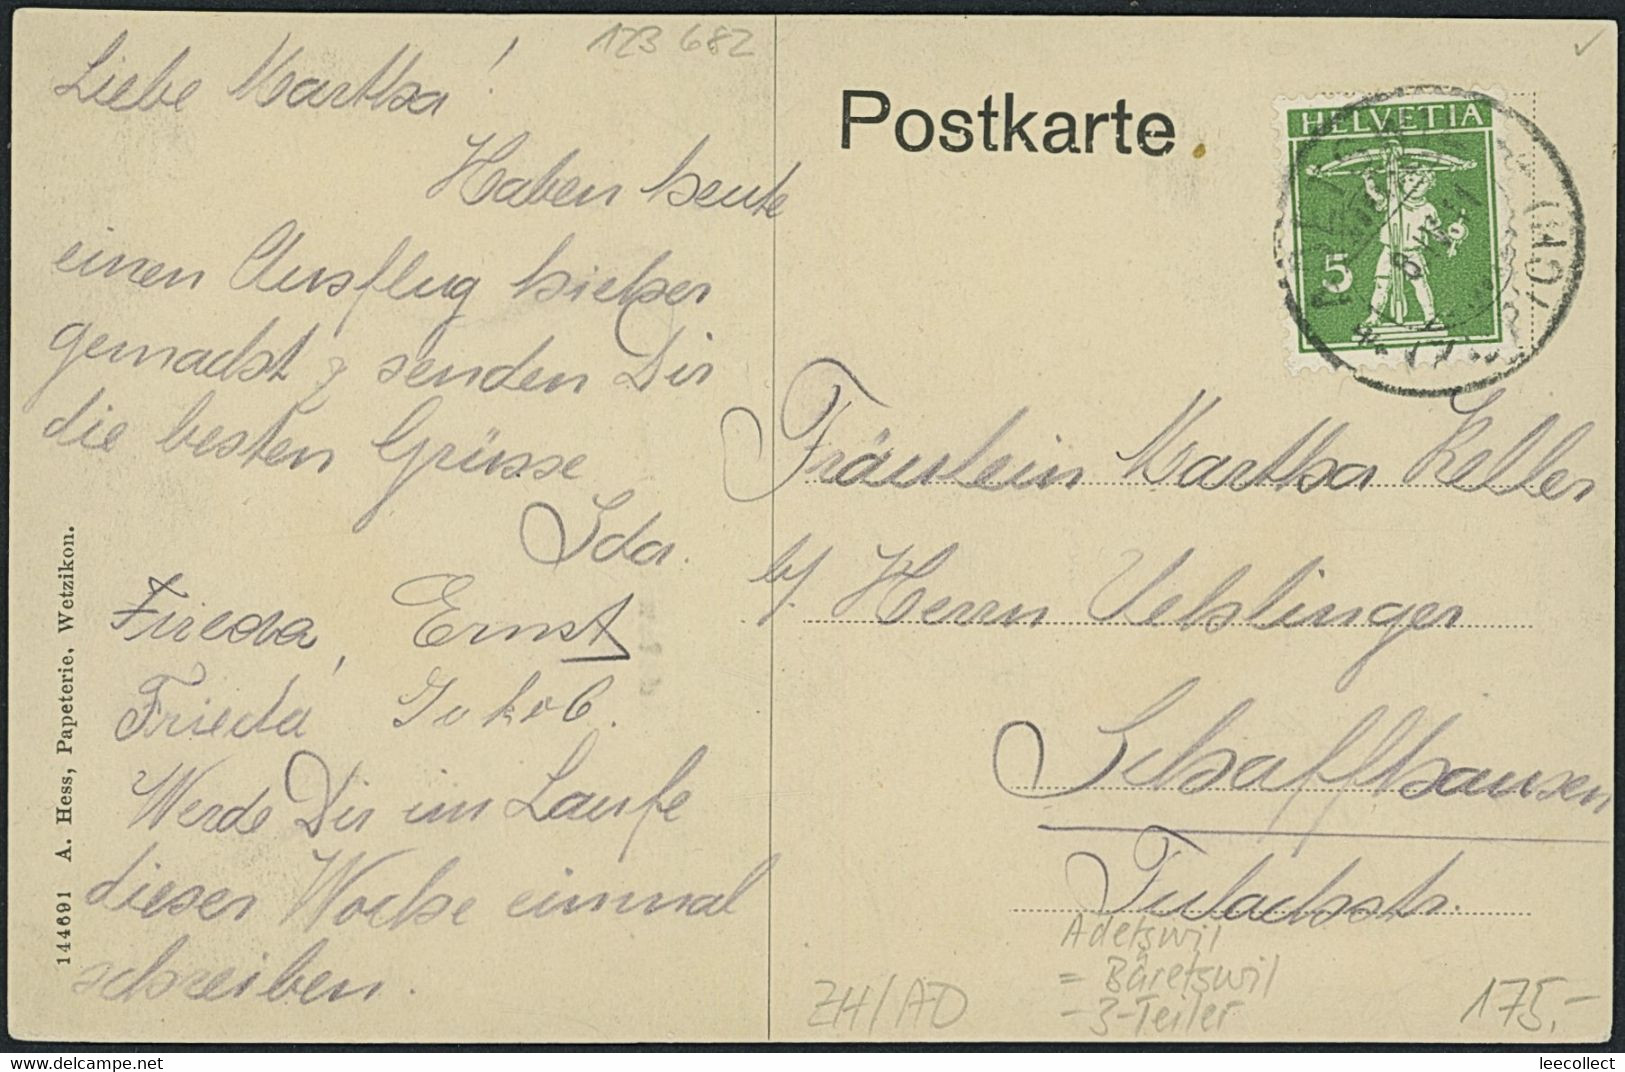 123 682
Liebe Martha!
Haben heute
einen Ausflug hieher
gemacht & senden Dir
die besten Grüsse
Ida.
Frieda, Ernst
Frieda Jakob.
Werde Dir im Laufe
dieser Woche einmal
schreiben.
144691 A. Hess, Papeterie, Wetzikon.
Postkarte
HELVETIA
5
Fräulein Martha Keller
b/. Herrn Uehlinger
Schaffhausen
Tulachstr.
Adetswil
= Bäretswil
- 3-Teiler
ZH/AD
175,-
leecollect